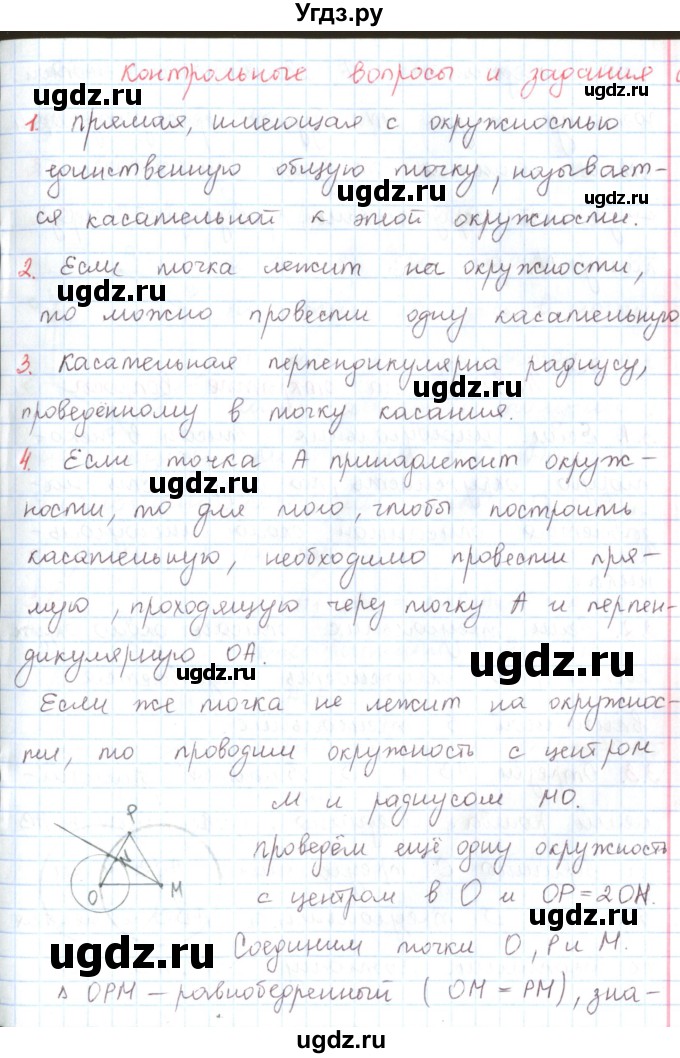 Угдз.ру
Контрольные вопросы и задания
ugdz.ru
1. Прямая, имеющая с окружностью
ugdz.ru
единственную общую точку, называет-
ugdz.ru
ugdz.ru
ся касательной к этой окружности.
2. Если точка лежит на окружности,
ugdz.ru
ugdz.ru
то можно провести одну касательную
3. Касательная перпендикулярна радиусу,
ugdz.ru
проведённому в точку касания.
4. Если точка А принадлежит окруж-
ugdz.ru
ности, то для того, чтобы построить
касательную, необходимо провести пря-
мую, проходящую через точку А и перпен-
дикулярную ОА.
ugdz.ru
ugdz.ru
Если же точка не лежит на окружнос-
ти, то проводим окружность с центром
М и радиусом МО.
P
N
O
M
Проведём ещё одну окружность
с центром в О и ОР=2ОН.
ugdz.ru
Соединим точки О, Р и М.
∆ ОРМ – равнобедренный (ОМ = РМ), зна-
ugdz.ru